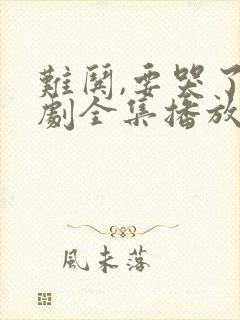 難鬨,要哭了
劇全集播放
風未落